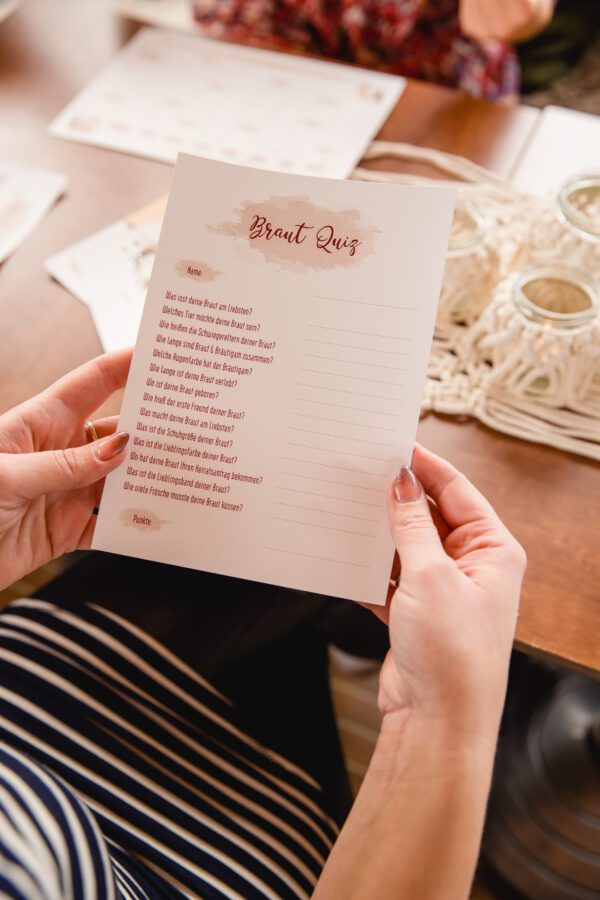 Braut Quiz
Name
Was isst deine Braut am Liebsten?
Welches Tier möchte deine Braut sein?
Wie heißen die Schwiegereltern deiner Braut?
Wie lange sind Braut & Bräutigam zusammen?
Welche Augenfarbe hat der Bräutigam?
Wie lange ist deine Braut verlobt?
Wo ist deine Braut geboren?
Wie hieß der erste Freund deiner Braut?
Was macht deine Braut am Liebsten?
Was ist die Schuhgröße deiner Braut?
Was ist die Lieblingsfarbe deiner Braut?
Wo hat deine Braut Ihren Heiratsantrag bekommen?
Was ist die Lieblingsband deiner Braut?
Wie viele Frösche musste deine Braut küssen?
Punkte